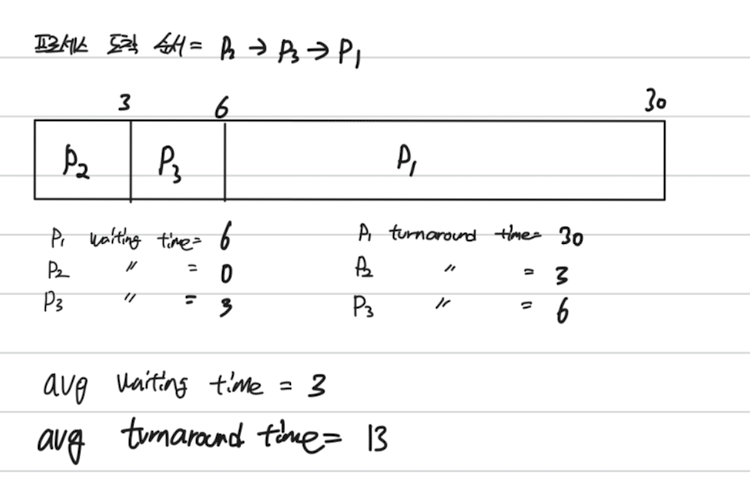 프로세스 도착 순서 = P2 → P3 → P1
3 6 30
P2 P3 P1
P1 waiting time = 6 P1 turnaround time = 30
P2 〃 = 0 P2 〃 = 3
P3 〃 = 3 P3 〃 = 6
avg waiting time = 3
avg turnaround time = 13